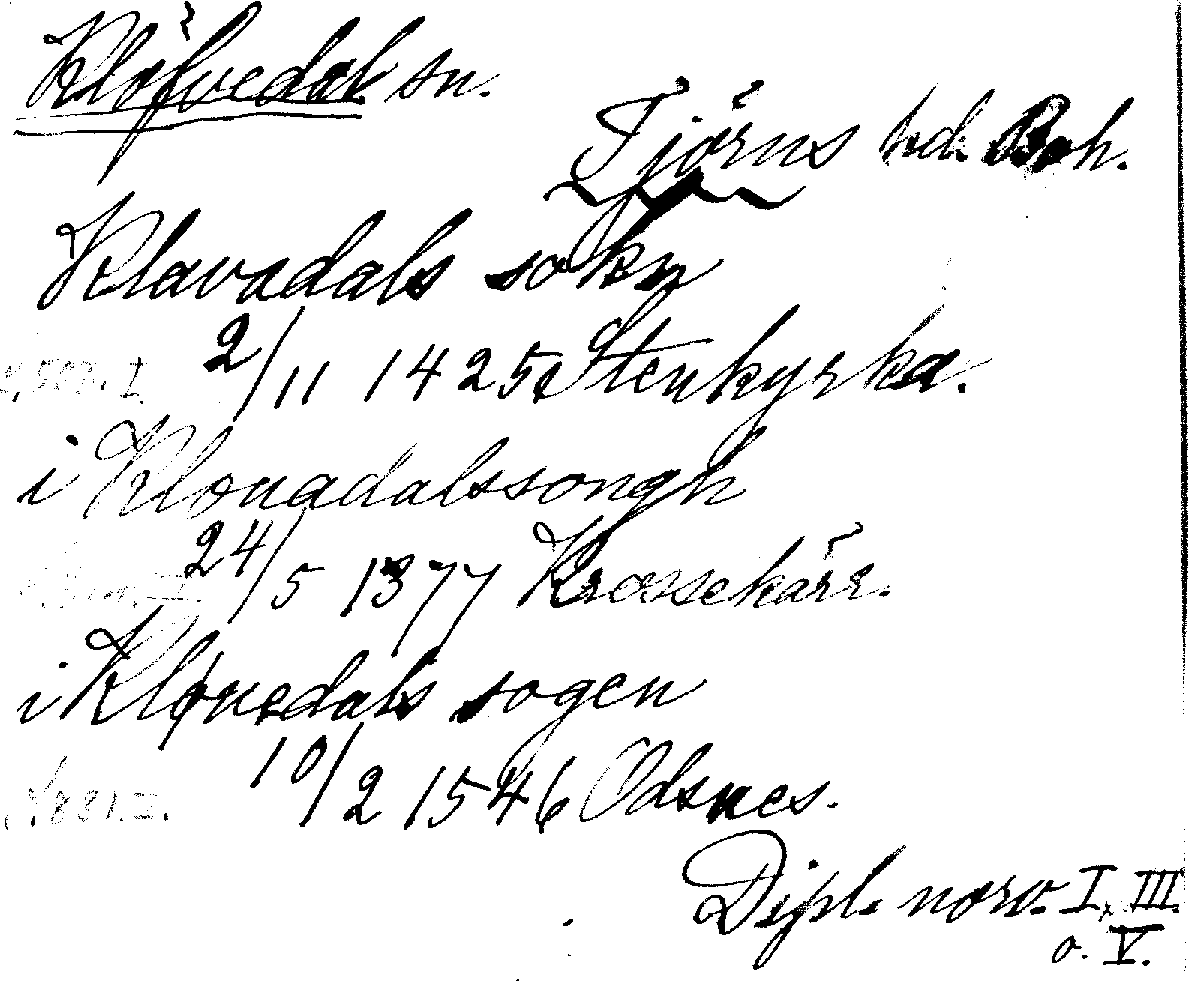 Klöfvedal sn.
Tjörns hd. Boh.
Klavadals sokn
2/11 1425. Stenkyrka.
i Klouadalssongh
24/5 1377 Krossekärr.
i Kløuedals sogen
10/2 1546 Odsnes.
Dipl. norv. I, III.
o. V.